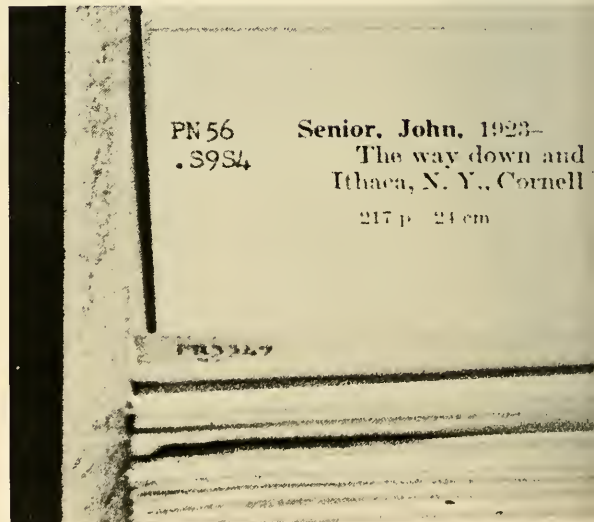 PN 56 Senior, John, 1923–
.S9S4 The way down and
Ithaca, N. Y., Cornell
217 p 24 cm